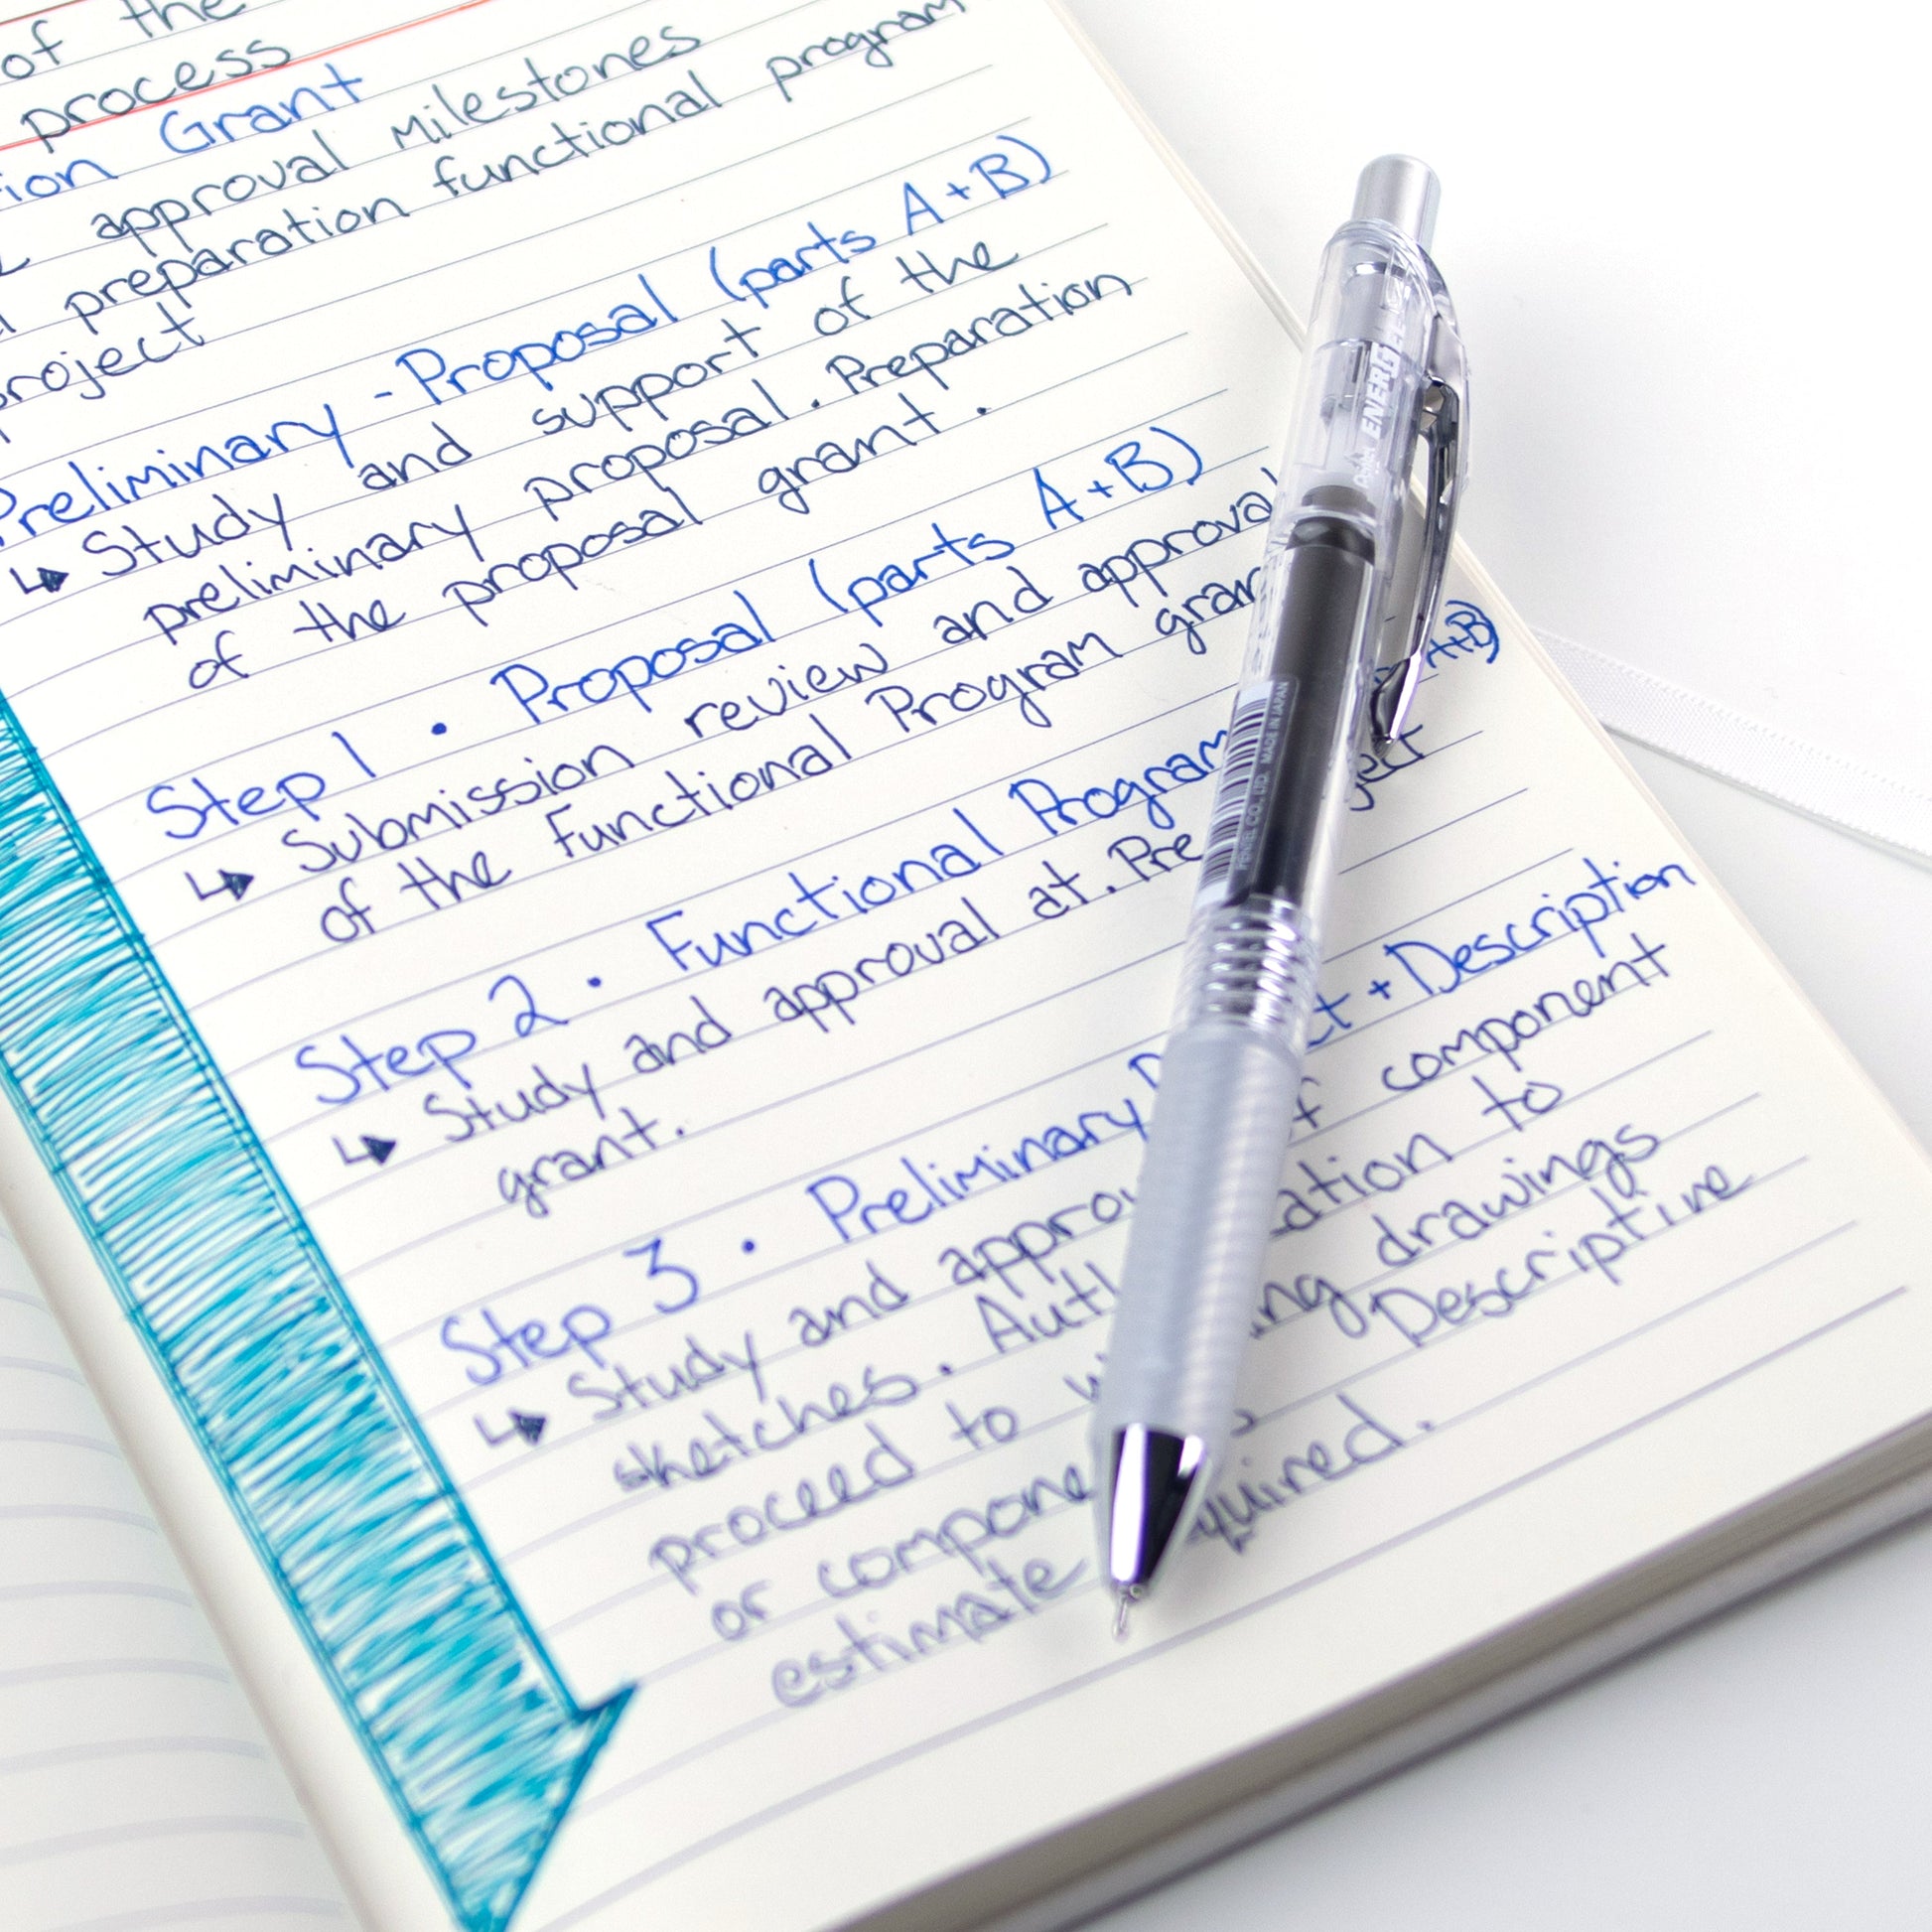 of the
process
Grant
approval Milestones
preparation functional program
Preliminary - Proposal (parts A+B)
↳ Study and support of the
preliminary proposal. Preparation
of the proposal grant.
Step 1 • Proposal (parts A+B)
↳ Submission review and approval
of the Functional Program
Step 2 • Functional Program A+B)
↳ Study and approval at. Pre
grant.
Step 3 • Preliminary + Description
↳ Study and component
sketches. to
proceed to drawings
or Descriptive
estimate
Pentel ENERGEL
PENTEL CO., LTD. MADE IN JAPAN